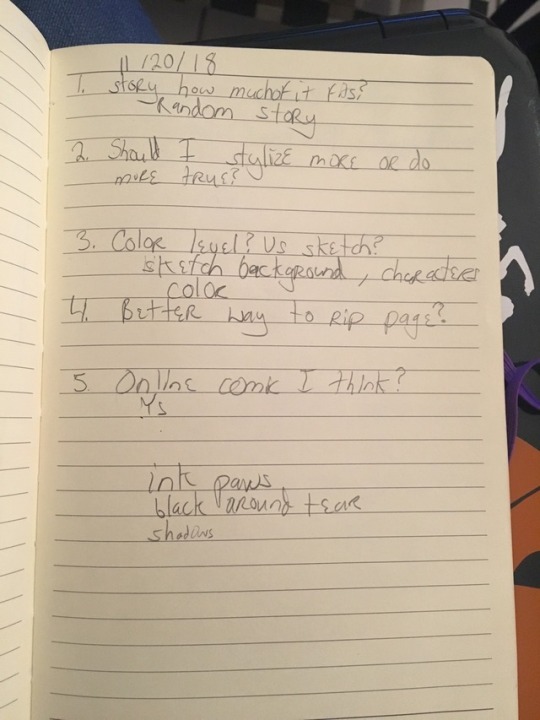 11/20/18
1. story how much of it fits?
-Random story
2. Should I stylize more or do
more true?
3. Color level? Vs sketch?
sketch background, characters
color
4. Better way to rip page?
5. Online comic I think?
Ys
ink paws
black around tear
shadows